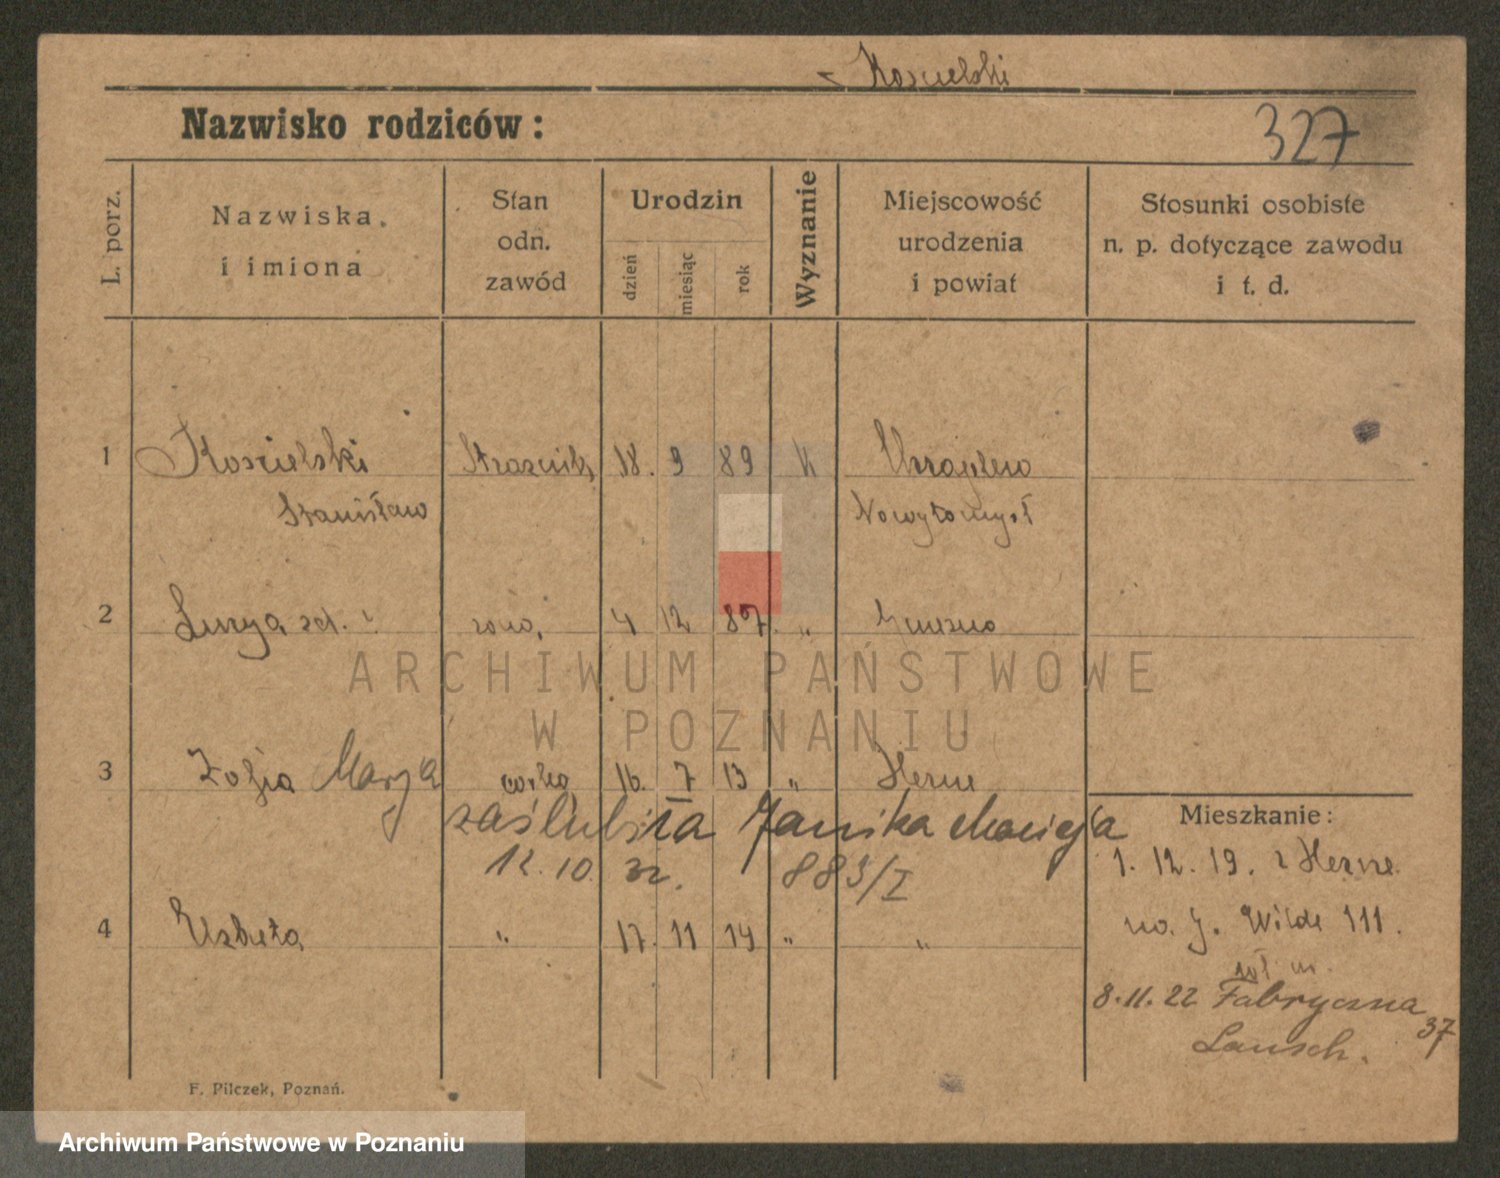 Koscielski
Nazwisko rodziców:
327
L. porz.
Nazwiska
i imiona
Stan
odn.
zawód
Urodzin
dzień
miesiąc
rok
Wyznanie
Miejscowość
urodzenia
i powiat
Stosunki osobiste
n. p. dotyczące zawodu
i t. d.
1 Koscielski 18. 9 89 K
Stanisław Nowytomysł
2 żona 4 12 87 „ Gniezno
3 Zofja Marja córka 16. 7 13 „ Herne
zaślubiła Janika Macieja
12.10. 32. 883/I
4 Elzbieta „ 17. 11 14 „ „
Mieszkanie:
1. 12. 19. z Herne
na G. Wilde 111.
8.11.22 Fabryczna 37
F. Pilczek, Poznań.
ARCHIWUM PAŃSTWOWE
W POZNANIU
Archiwum Państwowe w Poznaniu